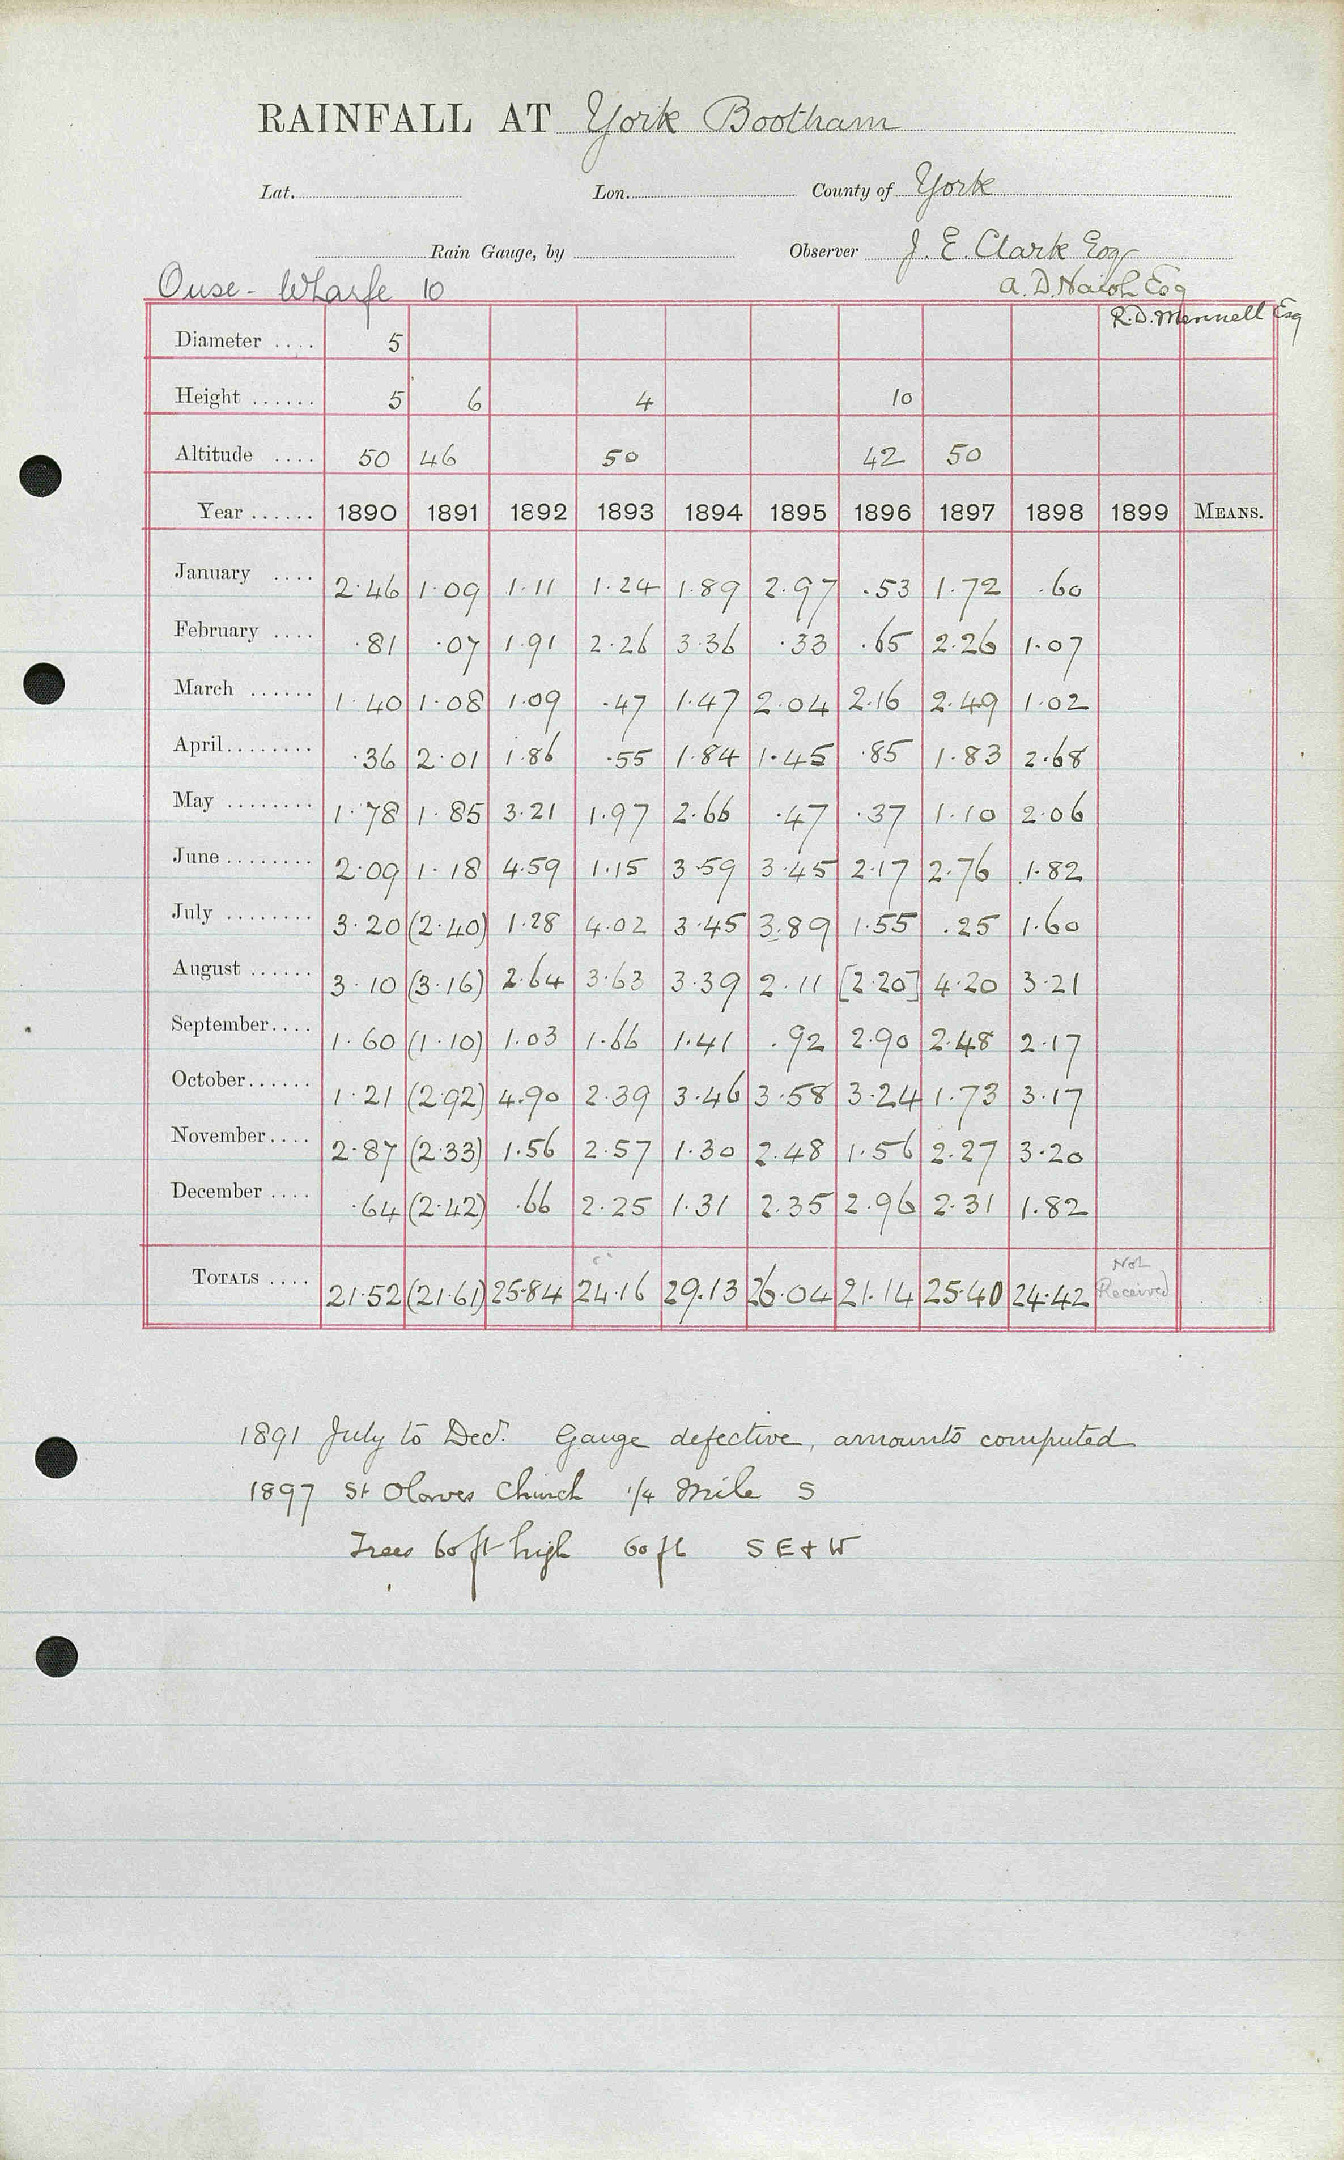 RAINFALL AT York Bootham
Lat. Lon. County of York
Rain Gauge, by Observer J. E. Clark Esq
Ouse - Wharfe 10 A. D. Naish Esq
R. D. Mennell Esq
Diameter .... 5
Height ...... 5 6 4 10
Altitude .... 50 46 50 42 50
Year ...... 1890 1891 1892 1893 1894 1895 1896 1897 1898 1899 MEANS.
January .... 2.46 1.09 1.11 1.24 1.89 2.97 .53 1.72 .60
February .... .81 .07 1.91 2.26 3.36 .33 .65 2.26 1.07
March ...... 1.40 1.08 1.09 .47 1.47 2.04 2.16 2.49 1.02
April........ .36 2.01 1.86 .55 1.84 1.45 .85 1.83 2.68
May ........ 1.78 1.85 3.21 1.97 2.66 .47 .37 1.10 2.06
June ........ 2.09 1.18 4.59 1.15 3.59 3.45 2.17 2.76 1.82
July ........ 3.20 (2.40) 1.28 4.02 3.45 3.89 1.55 .25 1.60
August ...... 3.10 (3.16) 2.64 3.63 3.39 2.11 [2.20] 4.20 3.21
September.... 1.60 (1.10) 1.03 1.66 1.41 .92 2.90 2.48 2.17
October...... 1.21 (2.92) 4.90 2.39 3.46 3.58 3.24 1.73 3.17
November.... 2.87 (2.33) 1.56 2.57 1.30 2.48 1.56 2.27 3.20
December .... .64 (2.42) .66 2.25 1.31 2.35 2.96 2.31 1.82
TOTALS .... 21.52 (21.61) 25.84 24.16 29.13 26.04 21.14 25.40 24.42 Not Received
1891 July to Decr. Gauge defective, amounts computed
1897 St Olaves Church 1/4 Mile S
Trees 60 ft high 60 ft S E + W